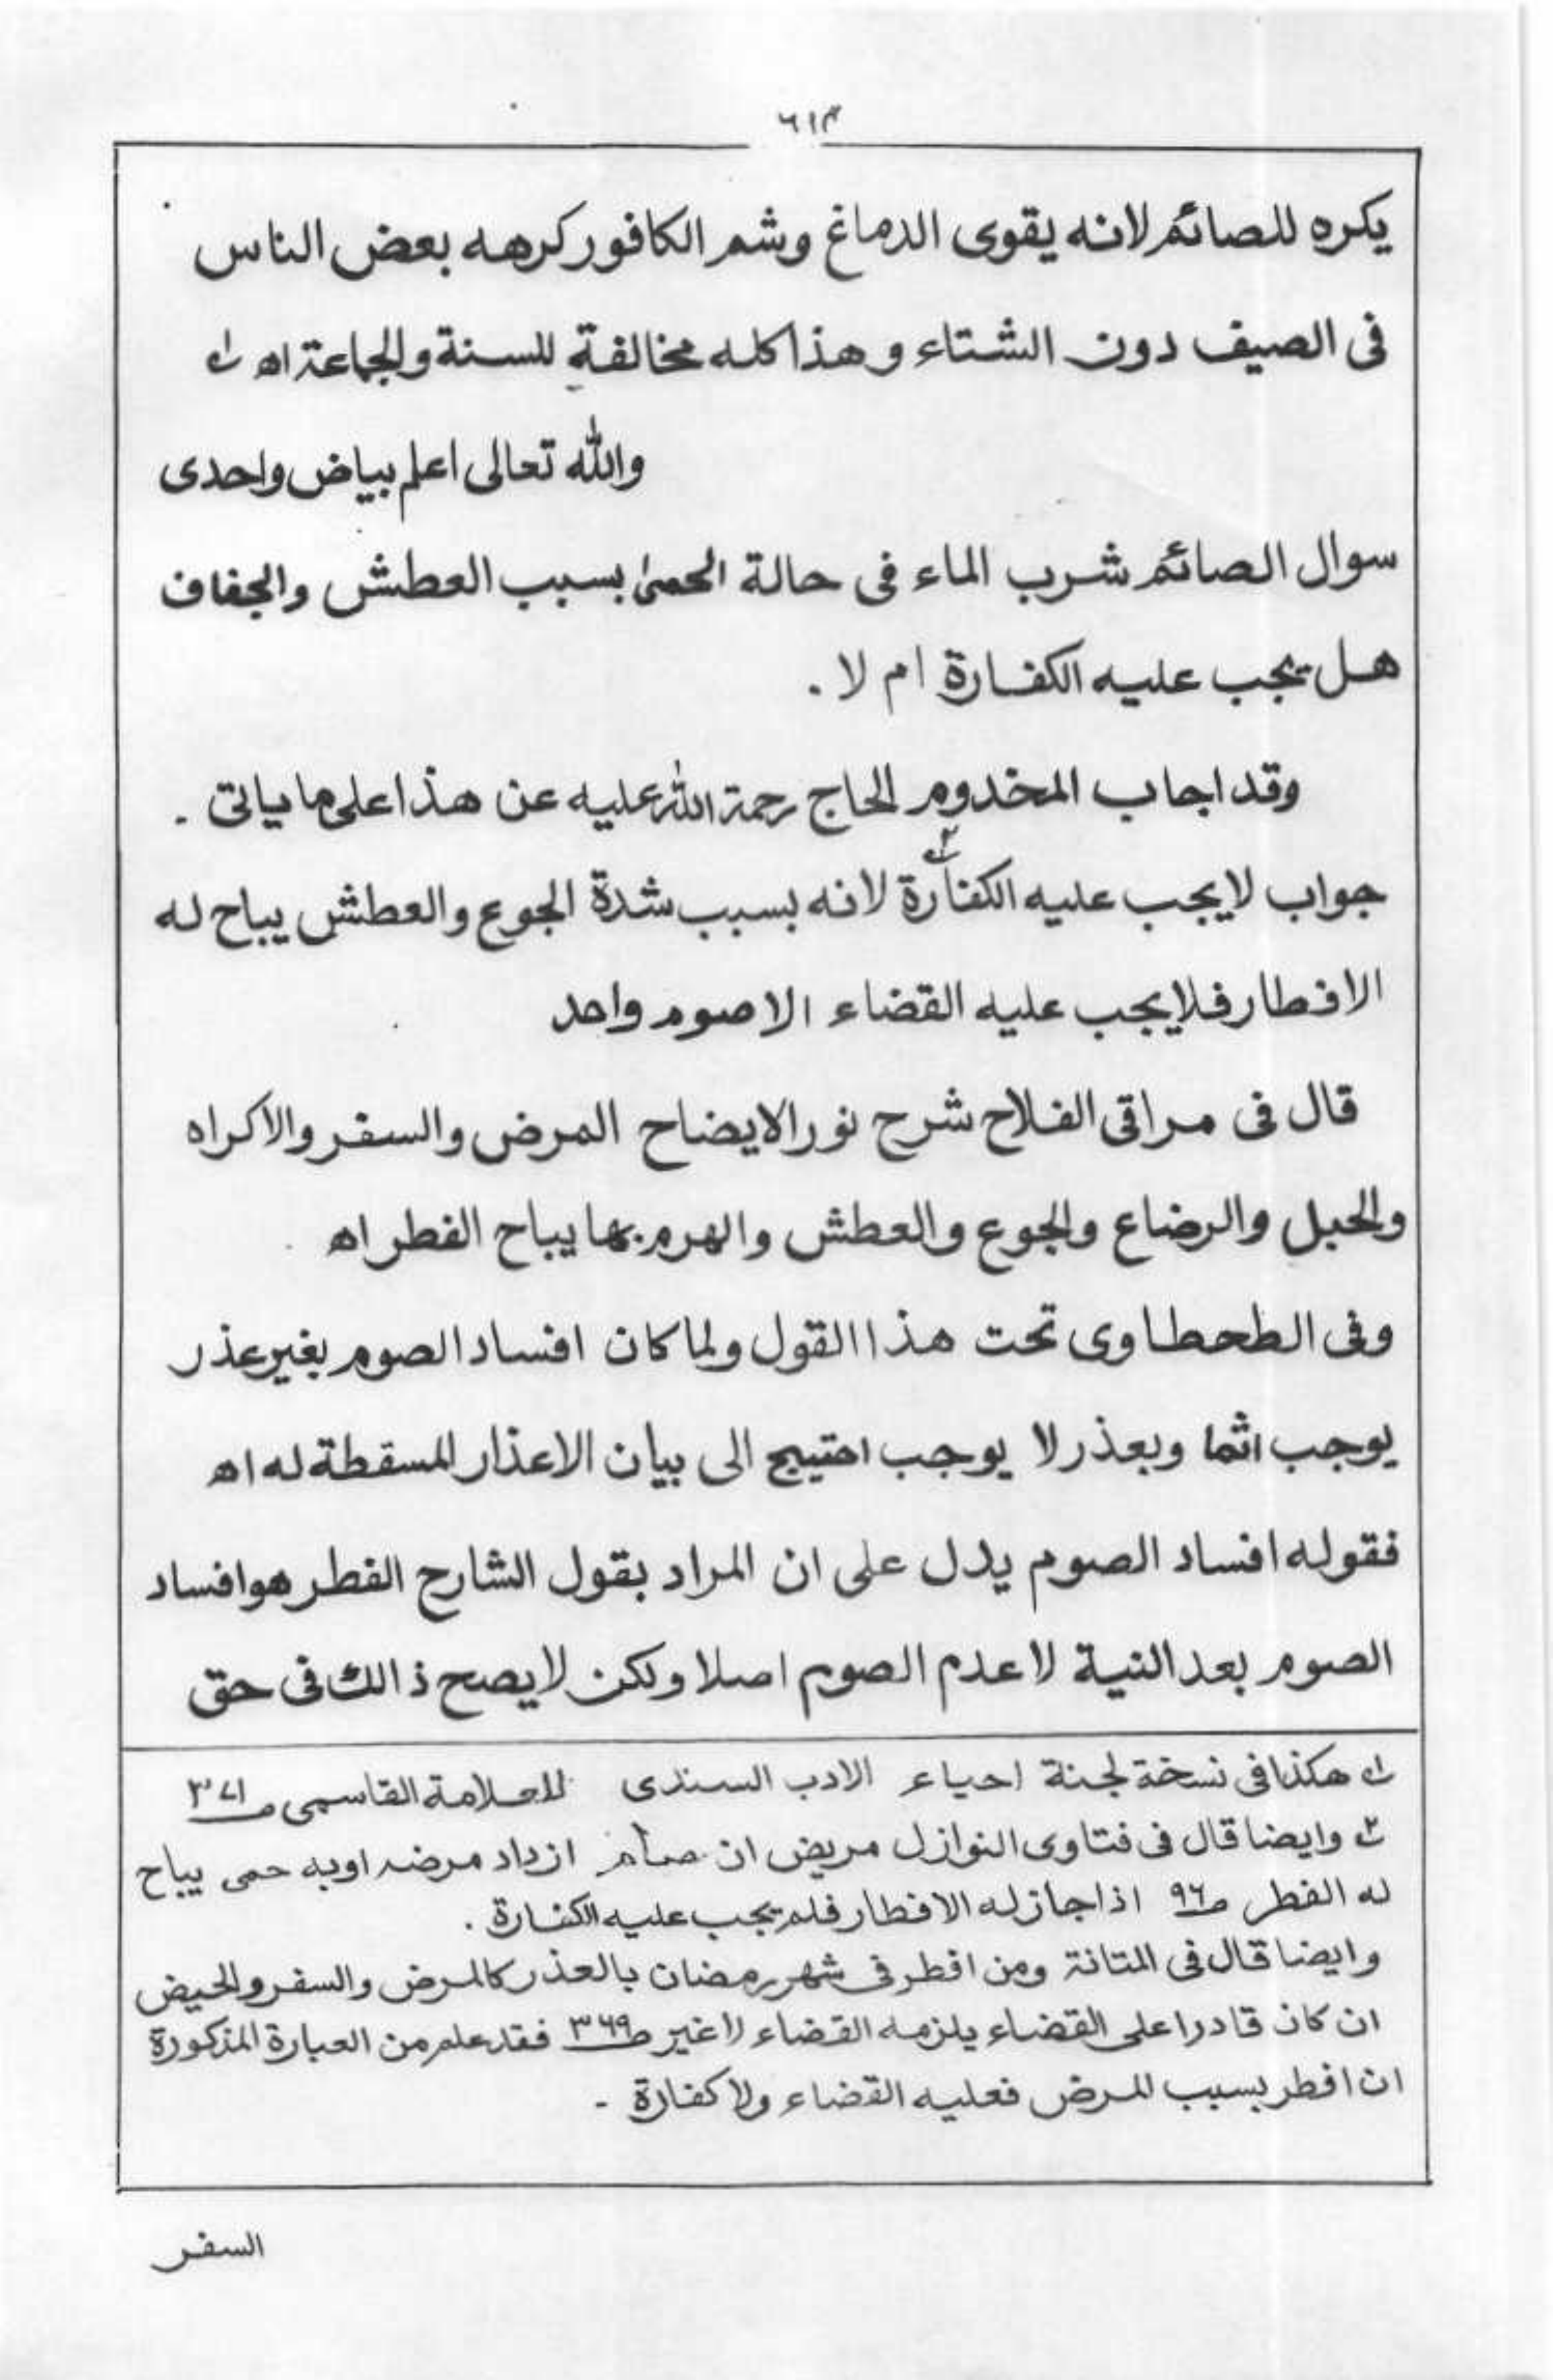 ٦١٣
يكره للصائم لانه يقوى الدماغ وشم الكافور كرهه بعض الناس
فى الصيف دون الشتاء وهذا كله مخالفة للسنة والجماعة اه ١؎
والله تعالى اعلم بياض واحدى
سوال الصائم شرب الماء فى حالة الحمىٰ بسبب العطش والجفاف
هل يجب عليه الكفارة ام لا .
وقد اجاب المخدوم الحاج رحمة الله عليه عن هذا على ما ياتى .
جواب لا يجب عليه الكفارة ٢؎ لانه بسبب شدة الجوع والعطش يباح له
الافطار فلا يجب عليه القضاء الا صوم واحد
قال فى مراقى الفلاح شرح نور الايضاح المرض والسفر والاكراه
والحبل والرضاع والجوع والعطش والهرم بها يباح الفطر اه
وفى الطحطاوى تحت هذا القول ولما كان افساد الصوم بغير عذر
يوجب اثما وبعذر لا يوجب احتيج الى بيان الاعذار المسقطة له اه
فقوله افساد الصوم يدل على ان المراد بقول الشارح الفطر هو افساد
الصوم بعد النية لا عدم الصوم اصلا ولكن لا يصح ذالك فى حق
١؎ هكذا فى نسخة لجنة احياء الادب السندى للعلامة القاسمى ص ٣٧١
٢؎ وايضا قال فى فتاوى النوازل مريض ان صام ازداد مرضه او به حمى يباح
له الفطر ص ٩٦ اذا جاز له الافطار فلم يجب عليه الكفارة .
وايضا قال فى المتانة ومن افطر فى شهر رمضان بالعذر كالمرض والسفر والحيض
ان كان قادرا على القضاء يلزمه القضاء لا غير ص ٣٦٩ فقد علم من العبارة المذكورة
ان افطر بسبب المرض فعليه القضاء ولا كفارة -
السفر